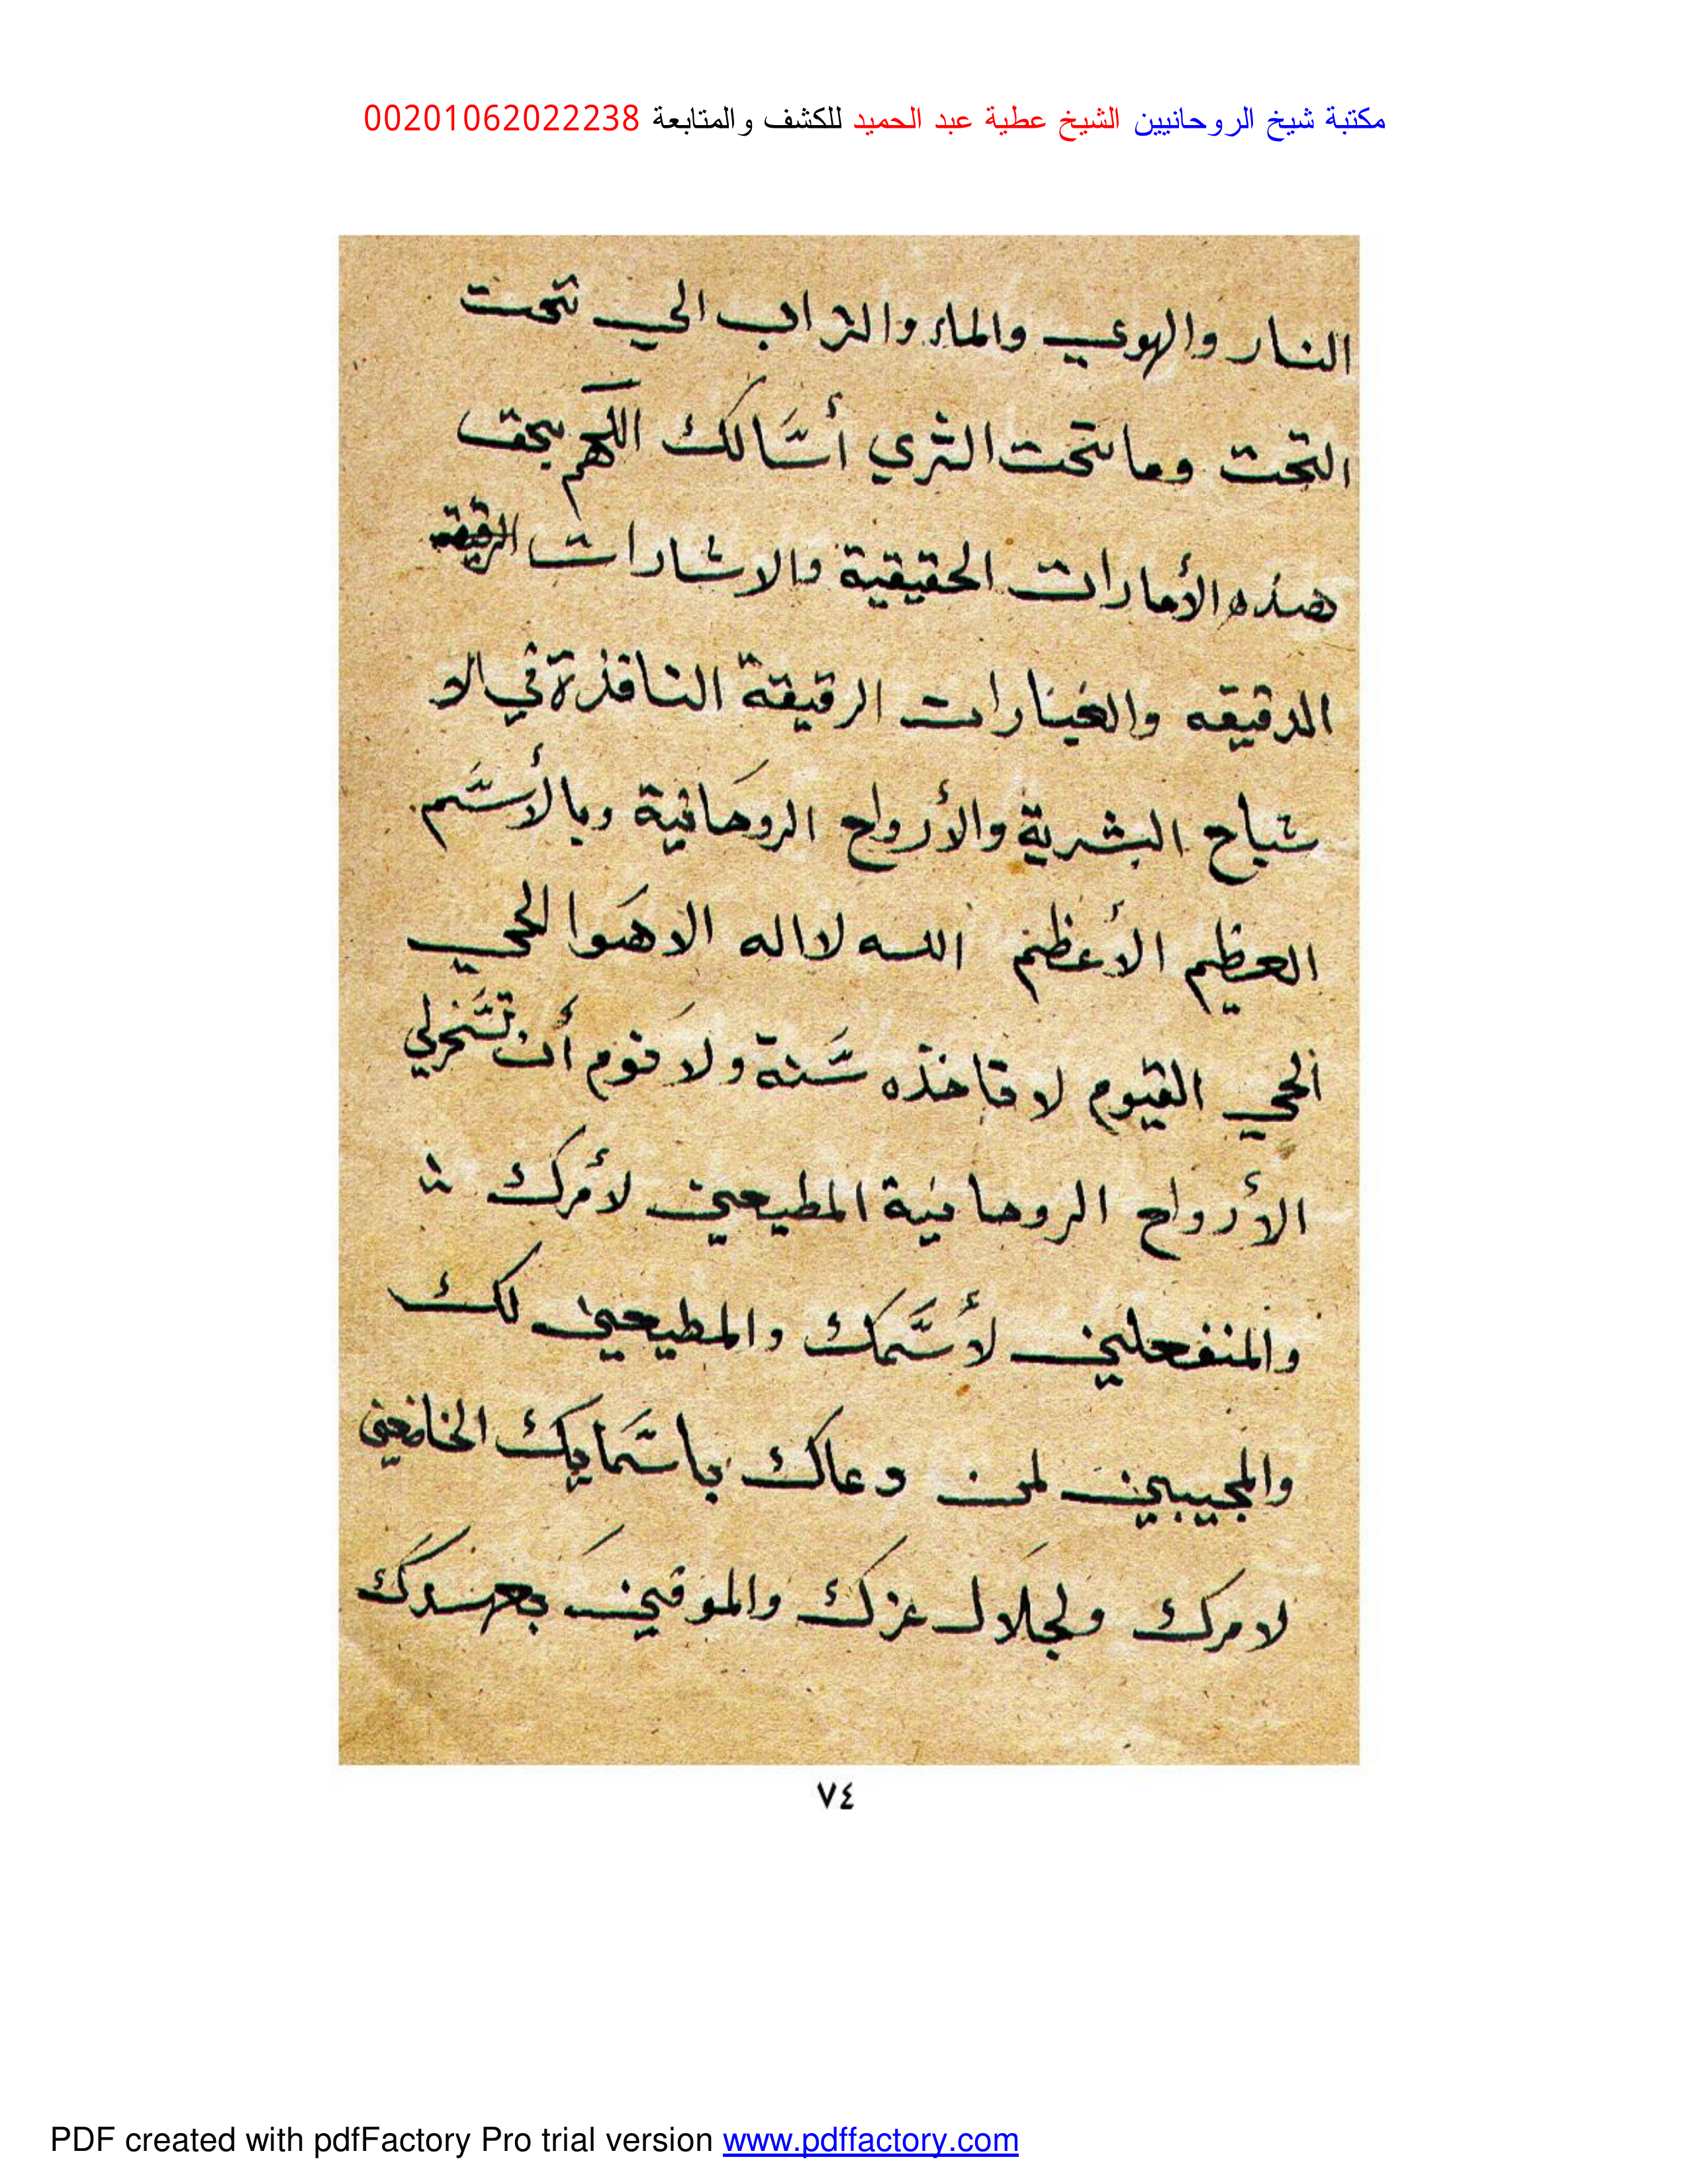 مكتبة شيخ الروحانيين الشيخ عطية عبد الحميد للكشف والمتابعة 00201062022238
النار والهوي والماء والتراب الي تحت
التحت وما تحت الثري أسَّالك اللهم بحق
هذه الأمارات الحقيقية والاشارات
الدقيقه والعبارات الرقيقة النافذة في الا
شباح البشرية والأرواح الروحَانية وبالأسَّم
العظيم الأعظم الله لااله الاهَوا الحي
الحي القيوم لا تاخذه سَّنة ولا نَوم أن تسَّخرلي
الأرواح الروحانية المطيعين لأمرك
والمنفعلين لأسَّمك والمطيعين لك
والمجيبين لمن دعاك باسَّمايك الخاضعين
لامرك ولجلال عزك والموفينَ بعهدك
٧٤
PDF created with pdfFactory Pro trial version www.pdffactory.com